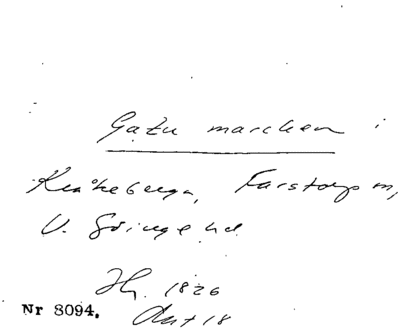 Gatu marchen i
Kråkeberga, Farstorp sn,
V. Göinge hd.
Hy. 1826
Akt 18
Nr 8094.